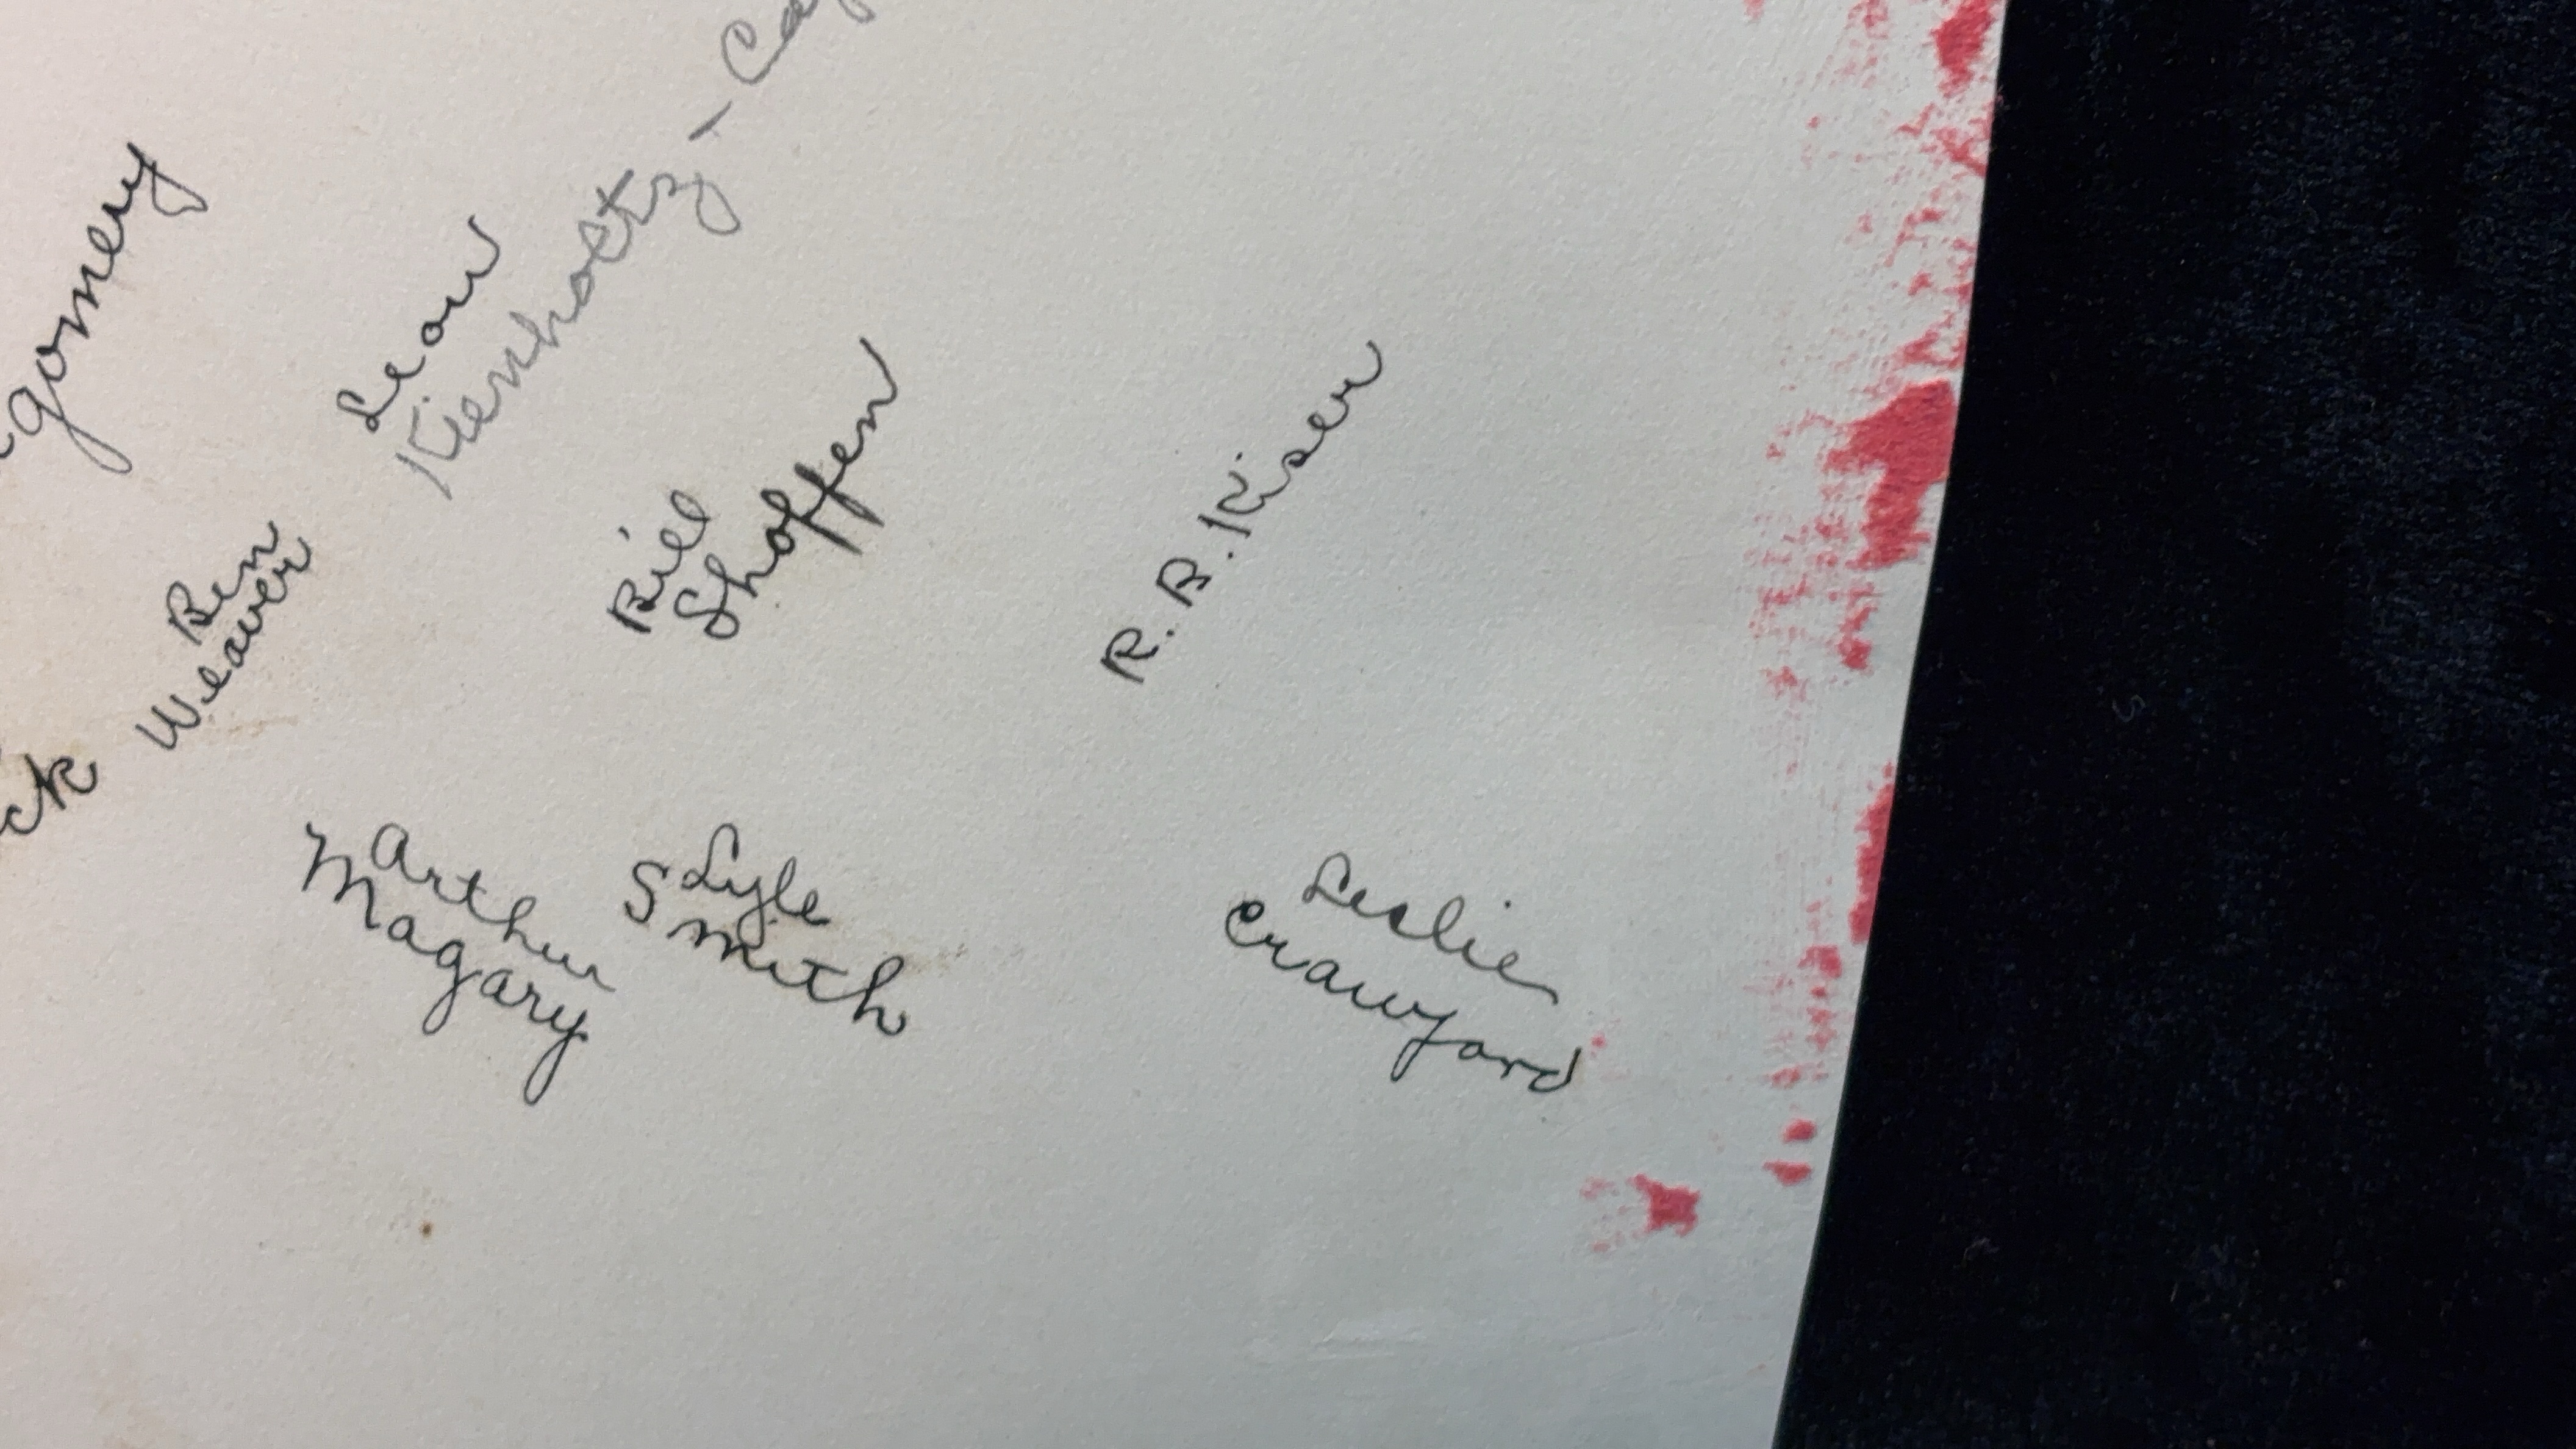 gomery
Leon
Kienholtz - Cap
Ben
Weaver
Bill
Shoffen
R. B. Kiser
ck
Arthur
Magary
Lyle
Smith
Leslie
Crawford